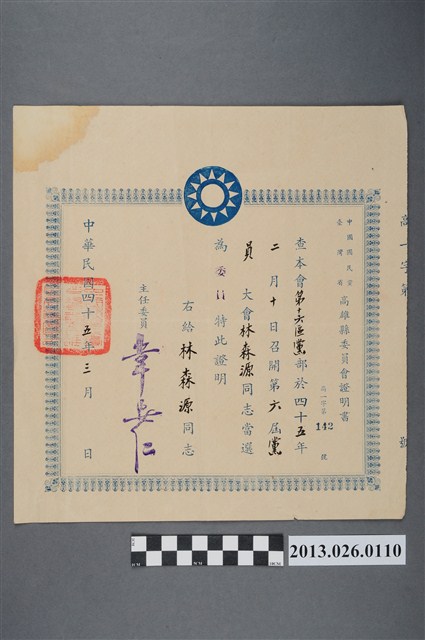 高一字第
號
中國國民黨
臺灣省
高雄縣委員會證明書
高一字第142號
查本會第十六區黨部於四十五年
二月十日召開第六屆黨
員大會林森源同志當選
為委員特此證明
右給林森源同志
主任委員
中華民國四十五年三月一日
2013.026.0110